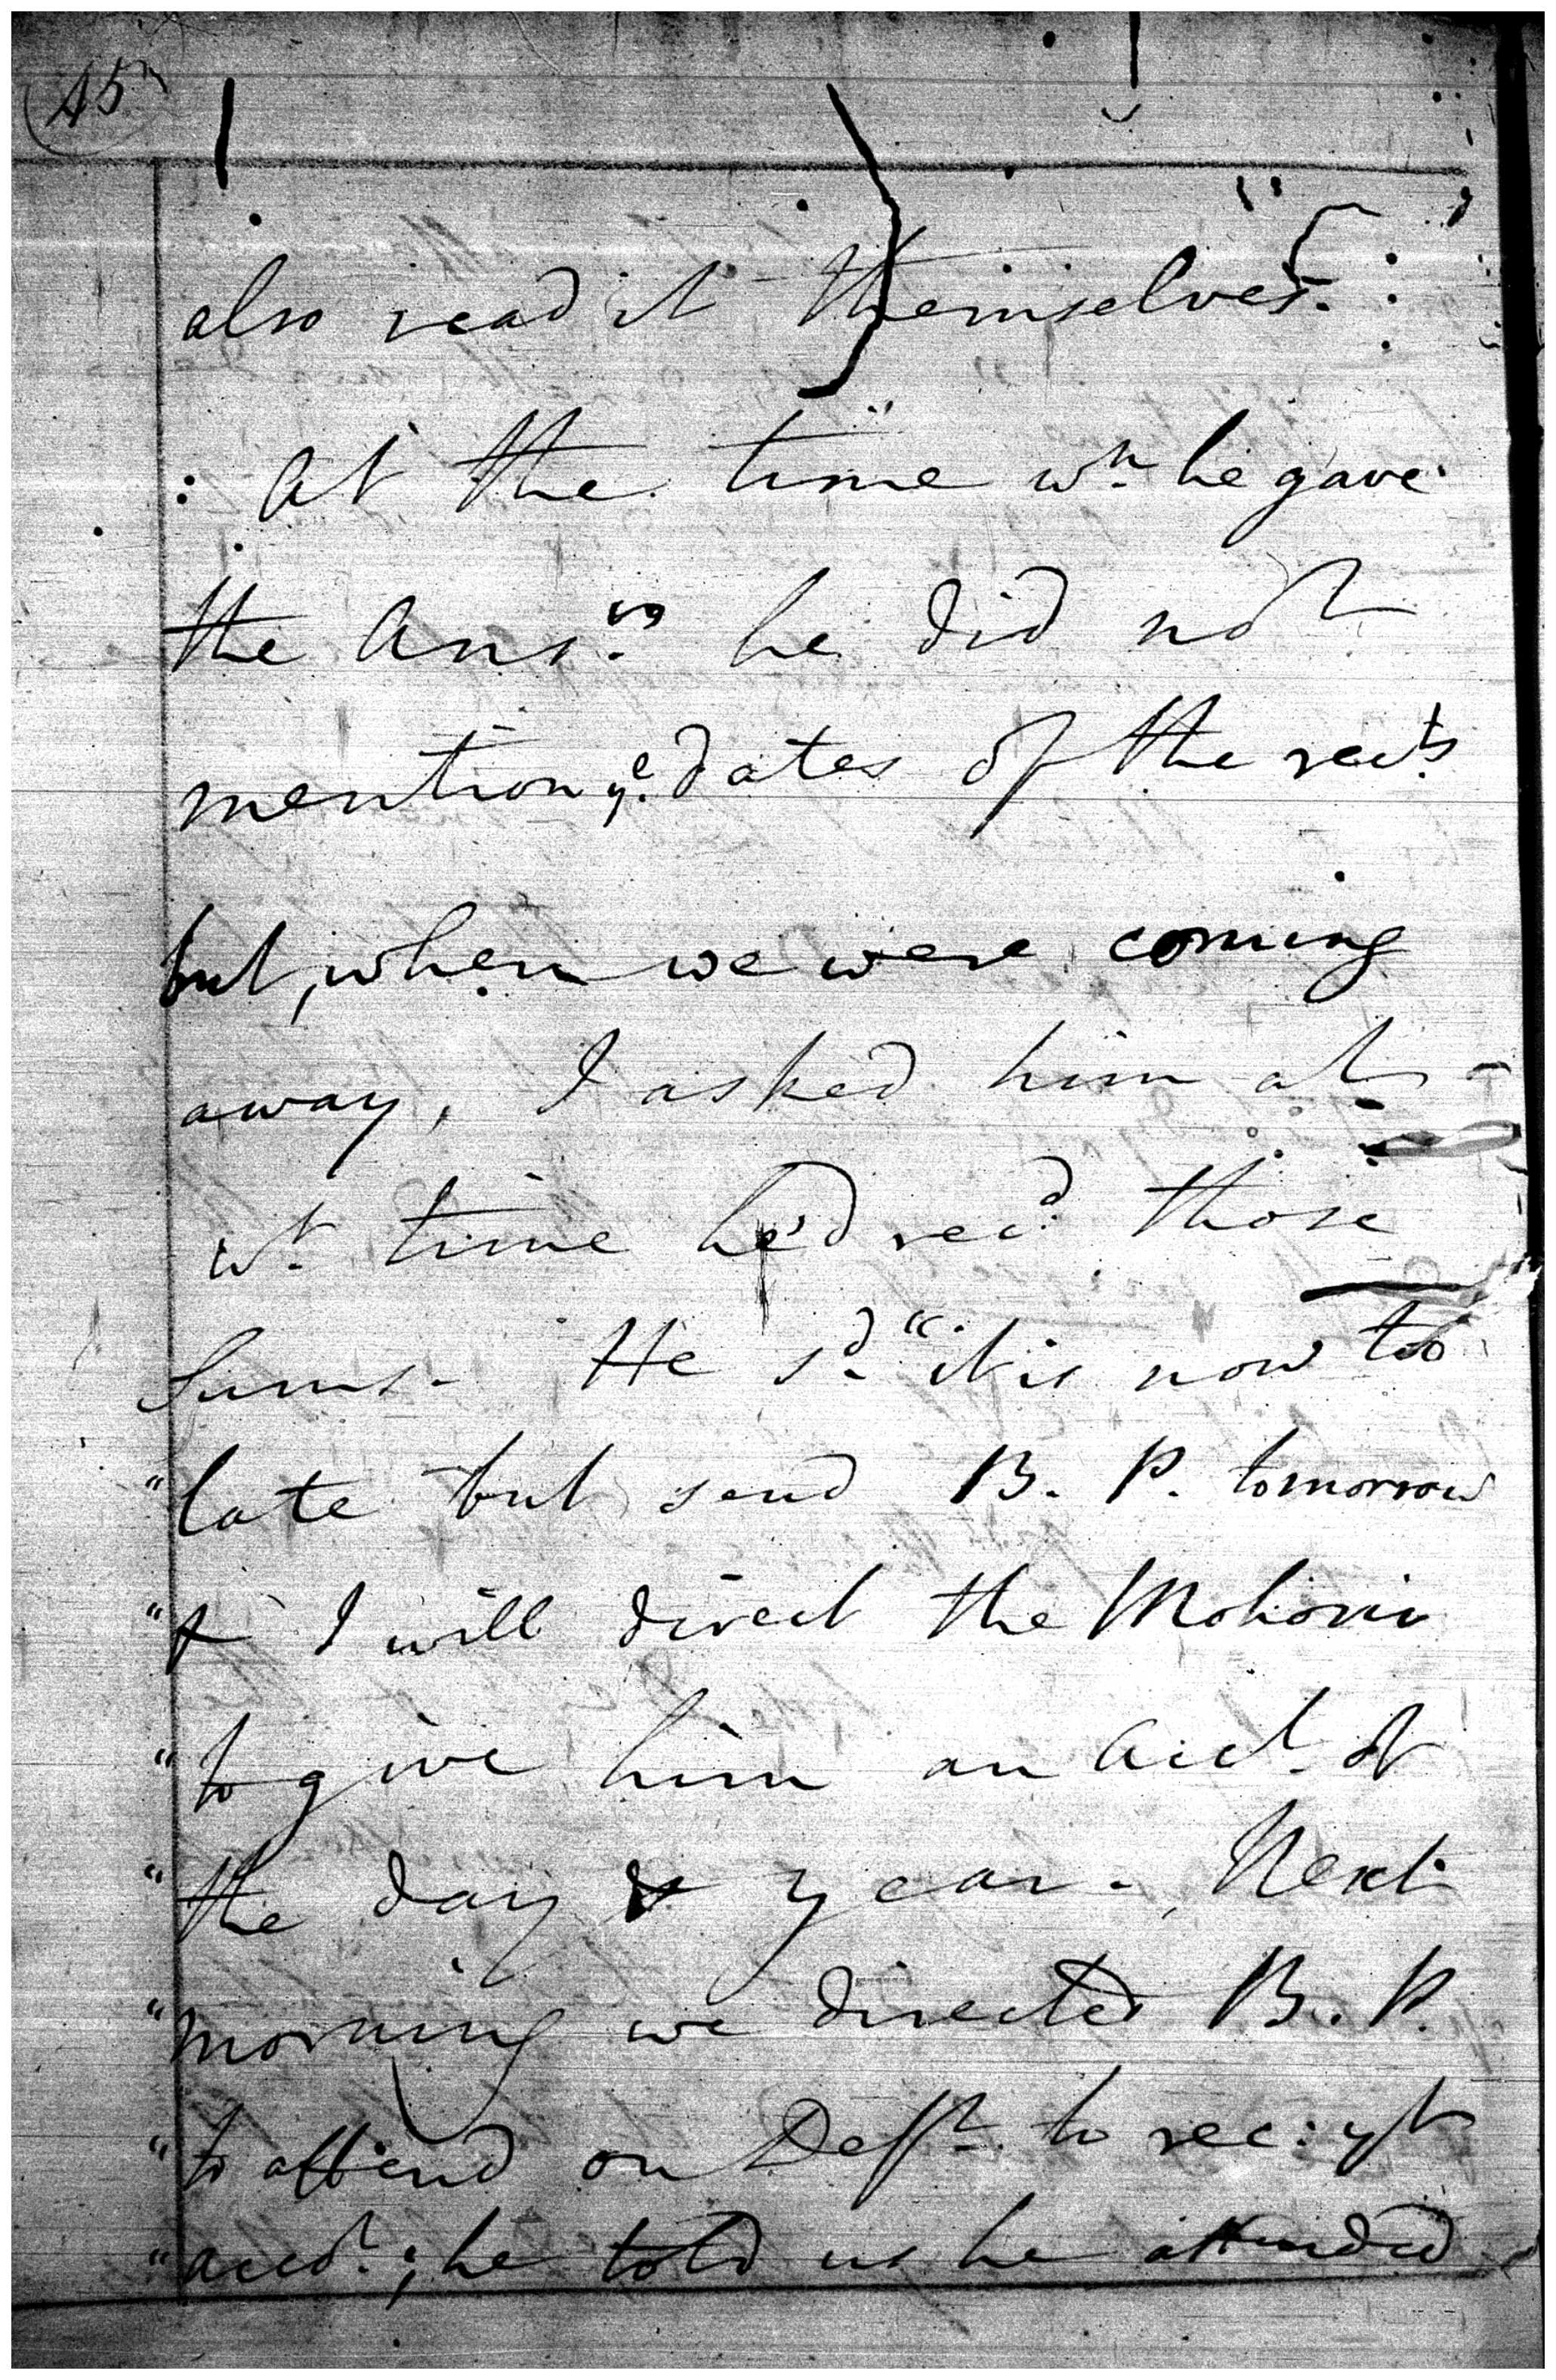 45
also read it themselves.
: At the time wn. he gave
the Answ. he did not
mention ye. dates of the rects.
but, when we were coming
away, I asked him at
wt. time he'd recd. those
Sums. He sd. "it is now too
"late but send B. P. tomorrow
"& I will direct the
"to give him an acct. of
"the day & year. Next
"morning we directed B. P.
"to attend on Deft. to rec: yt
"acct.; he told us he attended